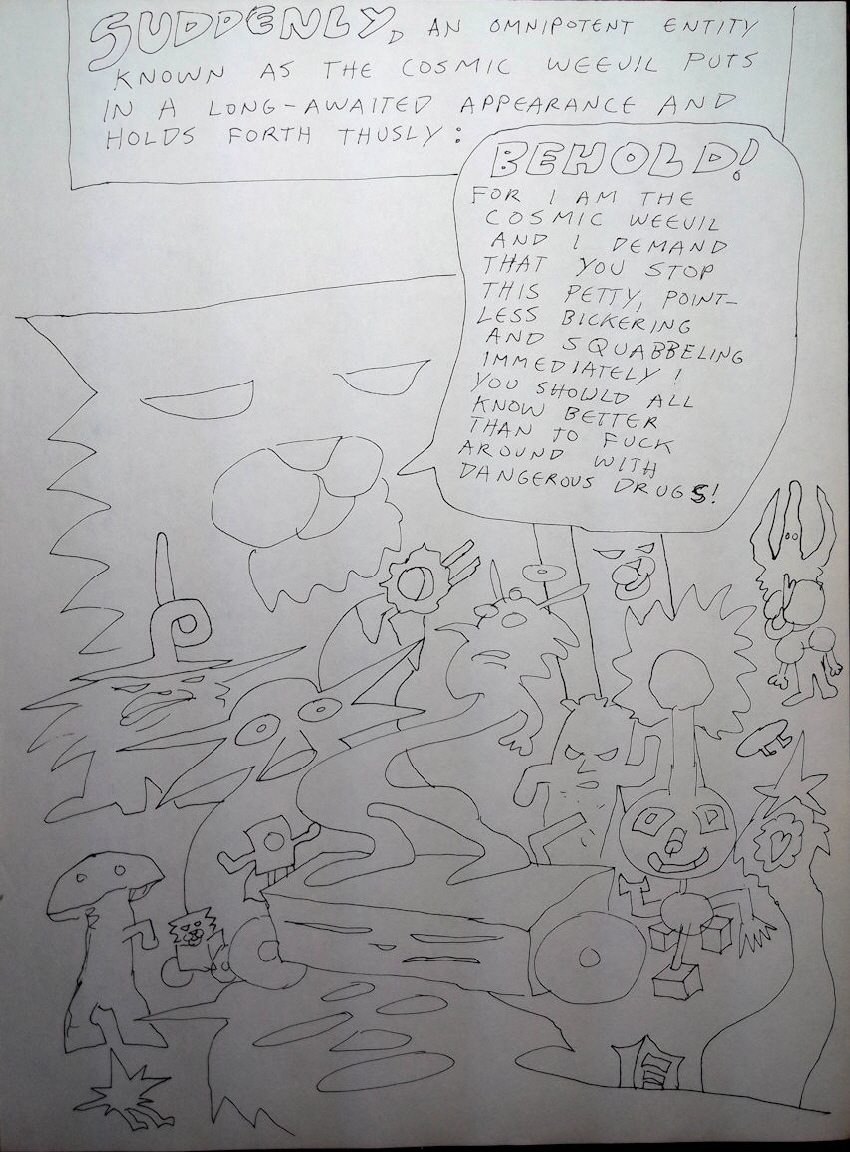 SUDDENLY, AN OMNIPOTENT ENTITY
KNOWN AS THE COSMIC WEEVIL PUTS
IN A LONG-AWAITED APPEARANCE AND
HOLDS FORTH THUSLY:
BEHOLD!
FOR I AM THE
COSMIC WEEVIL
AND I DEMAND
THAT YOU STOP
THIS PETTY, POINT-
LESS BICKERING
AND SQUABBELING
IMMEDIATELY!
YOU SHOULD ALL
KNOW BETTER
THAN TO FUCK
AROUND WITH
DANGEROUS DRUGS!